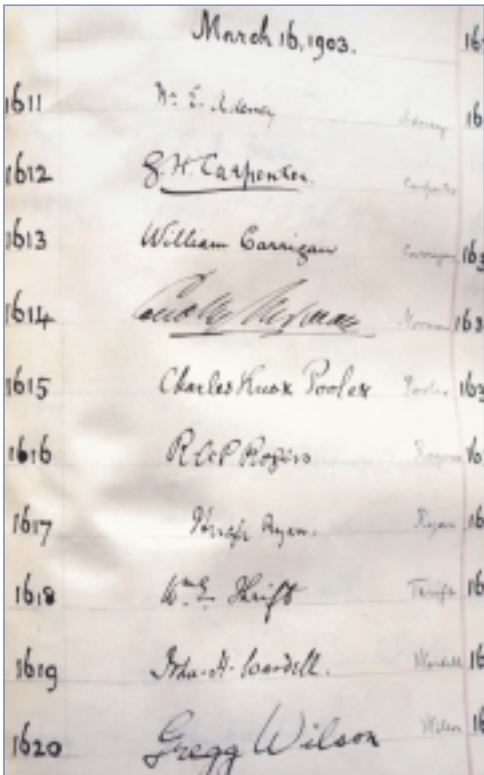 March 16, 1903. 16
1611 Wm E. Adeney Adeney 16
1612 G. H. Carpenter. Carpenter
1613 William Carrigan Carrigan 163
1614 Conolly Norman Norman 163
1615 Charles Knox Pooler Pooler 163
1616 R A P Rogers Rogers 16
1617 Hugh Ryan. Ryan 16
1618 Wm E. Thrift Thrift 16
1619 John H. Wardell. Wardell 16
1620 Gregg Wilson Wilson 16